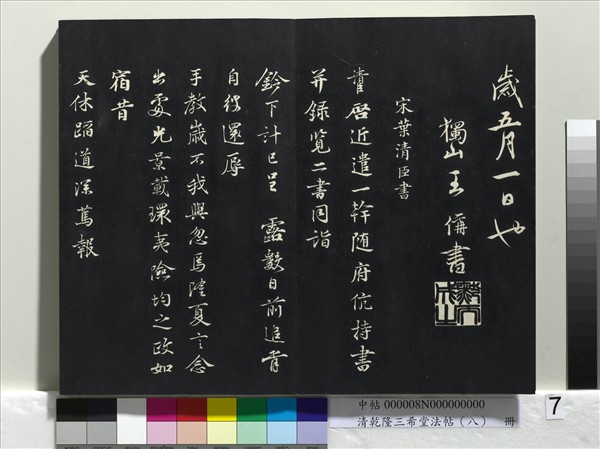 歲五月一日也
獨山王俯書
宋葉清臣書
清臣啓近遣一幹随府伉持書
并録覧二書同詣
鈴下計已呈 露數日前進奏
自彼還辱
手教歲不我與忽焉隆夏言念
出處光景載環夷險均之政如
宿昔
天休蹈道深篤報
中帖 000008N000000000
清乾隆三希堂法帖（八） 冊
7